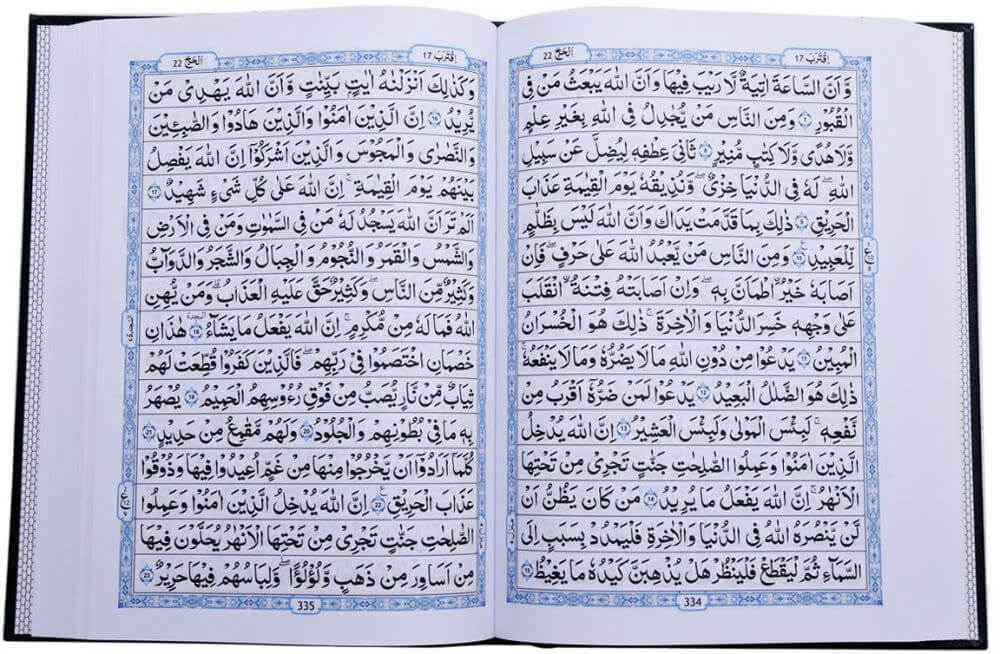 اِقْتَرَبَ 17 اَلْحَجّ 22
وَّاَنَّ السَّاعَةَ اٰتِيَةٌ لَّا رَيْبَ فِيْهَا وَاَنَّ اللّٰهَ يَبْعَثُ مَنْ فِى
الْقُبُوْرِ ۷ وَمِنَ النَّاسِ مَنْ يُّجَادِلُ فِى اللّٰهِ بِغَيْرِ عِلْمٍ
وَّلَا هُدًى وَّلَا كِتٰبٍ مُّنِيْرٍ ۸ ثَانِىَ عِطْفِهٖ لِيُضِلَّ عَنْ سَبِيْلِ
اللّٰهِ ؕ لَهٗ فِى الدُّنْيَا خِزْىٌ ۖ وَّنُذِيْقُهٗ يَوْمَ الْقِيٰمَةِ عَذَابَ
الْحَرِيْقِ ۹ ذٰلِكَ بِمَا قَدَّمَتْ يَدٰكَ وَاَنَّ اللّٰهَ لَيْسَ بِظَلَّامٍ
لِّلْعَبِيْدِ ۱۰ وَمِنَ النَّاسِ مَنْ يَّعْبُدُ اللّٰهَ عَلٰى حَرْفٍ ۚ فَاِنْ
اَصَابَهٗ خَيْرُ ۨاطْمَاَنَّ بِهٖ ۚ وَاِنْ اَصَابَتْهُ فِتْنَةُ ۨانْقَلَبَ
عَلٰى وَجْهِهٖ ۚ خَسِرَ الدُّنْيَا وَالْاٰخِرَةَ ؕ ذٰلِكَ هُوَ الْخُسْرَانُ
الْمُبِيْنُ ۱۱ يَدْعُوْا مِنْ دُوْنِ اللّٰهِ مَا لَا يَضُرُّهٗ وَمَا لَا يَنْفَعُهٗ ؕ
ذٰلِكَ هُوَ الضَّلٰلُ الْبَعِيْدُ ۱۲ يَدْعُوْا لَمَنْ ضَرُّهٗۤ اَقْرَبُ مِنْ
نَّفْعِهٖ ؕ لَبِئْسَ الْمَوْلٰى وَلَبِئْسَ الْعَشِيْرُ ۱۳ اِنَّ اللّٰهَ يُدْخِلُ
الَّذِيْنَ اٰمَنُوْا وَعَمِلُوا الصّٰلِحٰتِ جَنّٰتٍ تَجْرِىْ مِنْ تَحْتِهَا
الْاَنْهٰرُ ؕ اِنَّ اللّٰهَ يَفْعَلُ مَا يُرِيْدُ ۱۴ مَنْ كَانَ يَظُنُّ اَنْ
لَّنْ يَّنْصُرَهُ اللّٰهُ فِى الدُّنْيَا وَالْاٰخِرَةِ فَلْيَمْدُدْ بِسَبَبٍ اِلَى
السَّمَآءِ ثُمَّ لْيَقْطَعْ فَلْيَنْظُرْ هَلْ يُذْهِبَنَّ كَيْدُهٗ مَا يَغِيْظُ ۱۵
334
اِقْتَرَبَ 17 اَلْحَجّ 22
وَكَذٰلِكَ اَنْزَلْنٰهُ اٰيٰتٍۭ بَيِّنٰتٍ ۙ وَّاَنَّ اللّٰهَ يَهْدِىْ مَنْ
يُّرِيْدُ ۱۶ اِنَّ الَّذِيْنَ اٰمَنُوْا وَالَّذِيْنَ هَادُوْا وَالصّٰبِئِيْنَ
وَالنَّصٰرٰى وَالْمَجُوْسَ وَالَّذِيْنَ اَشْرَكُوْۤا ۖ اِنَّ اللّٰهَ يَفْصِلُ
بَيْنَهُمْ يَوْمَ الْقِيٰمَةِ ؕ اِنَّ اللّٰهَ عَلٰى كُلِّ شَىْءٍ شَهِيْدٌ ۱۷
اَلَمْ تَرَ اَنَّ اللّٰهَ يَسْجُدُ لَهٗ مَنْ فِى السَّمٰوٰتِ وَمَنْ فِى الْاَرْضِ
وَالشَّمْسُ وَالْقَمَرُ وَالنُّجُوْمُ وَالْجِبَالُ وَالشَّجَرُ وَالدَّوَآبُّ
وَكَثِيْرٌ مِّنَ النَّاسِ ؕ وَكَثِيْرٌ حَقَّ عَلَيْهِ الْعَذَابُ ؕ وَمَنْ يُّهِنِ
اللّٰهُ فَمَا لَهٗ مِنْ مُّكْرِمٍ ؕ اِنَّ اللّٰهَ يَفْعَلُ مَا يَشَآءُ ۱۸ هٰذٰنِ
خَصْمٰنِ اخْتَصَمُوْا فِىْ رَبِّهِمْ ۖ فَالَّذِيْنَ كَفَرُوْا قُطِّعَتْ لَهُمْ
ثِيَابٌ مِّنْ نَّارٍ ؕ يُصَبُّ مِنْ فَوْقِ رُءُوْسِهِمُ الْحَمِيْمُ ۱۹ يُصْهَرُ
بِهٖ مَا فِىْ بُطُوْنِهِمْ وَالْجُلُوْدُ ۲۰ وَلَهُمْ مَّقَامِعُ مِنْ حَدِيْدٍ ۲۱
كُلَّمَاۤ اَرَادُوْۤا اَنْ يَّخْرُجُوْا مِنْهَا مِنْ غَمٍّ اُعِيْدُوْا فِيْهَا وَذُوْقُوْا
عَذَابَ الْحَرِيْقِ ۲۲ اِنَّ اللّٰهَ يُدْخِلُ الَّذِيْنَ اٰمَنُوْا وَعَمِلُوا
الصّٰلِحٰتِ جَنّٰتٍ تَجْرِىْ مِنْ تَحْتِهَا الْاَنْهٰرُ يُحَلَّوْنَ فِيْهَا
مِنْ اَسَاوِرَ مِنْ ذَهَبٍ وَّلُؤْلُؤًا ؕ وَلِبَاسُهُمْ فِيْهَا حَرِيْرٌ ۲۳
335